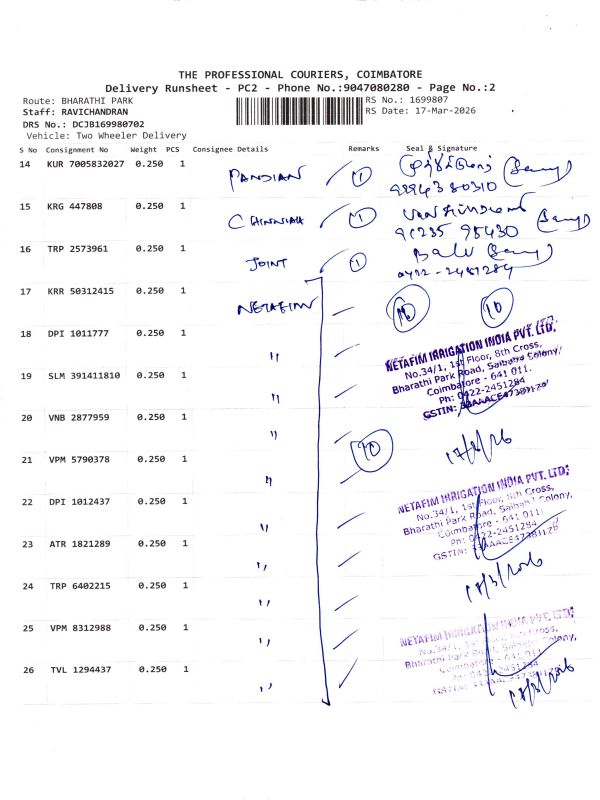 THE PROFESSIONAL COURIERS, COIMBATORE
Delivery Runsheet - PC2 - Phone No.:9047080280 - Page No.:2
Route: BHARATHI PARK
RS No.: 1699807
Staff: RAVICHANDRAN
RS Date: 17-Mar-2026
DRS No.: DCJB169980702
Vehicle: Two Wheeler Delivery
S No Consignment No Weight PCS Consignee Details Remarks Seal & Signature
14 KUR 7005832027 0.250 1 PANDIAN 1
9994380310
15 KRG 447808 0.250 1 CHINNIAH 1
91235 95430
16 TRP 2573961 0.250 1 JOINT 1 Balu
0422-2451284
17 KRR 50312415 0.250 1 NETAFIM 10 10
18 DPI 1011777 0.250 1 "
NETAFIM IRRIGATION INDIA PVT. LTD.
No.34/1, 1st Floor, 8th Cross,
Bharathi Park Road, Saibaba Colony,
Coimbatore - 641 011.
Ph: 0422-2451284
GSTIN:
19 SLM 391411810 0.250 1 "
20 VNB 2877959 0.250 1 "
10
21 VPM 5790378 0.250 1 "
NETAFIM IRRIGATION INDIA PVT. LTD.
No.34/1, 1st Floor, 8th Cross,
Bharathi Park Road, Saibaba Colony,
Coimbatore - 641 011.
Ph: 0422-2451284
GSTIN:
22 DPI 1012437 0.250 1 "
23 ATR 1821289 0.250 1 "
24 TRP 6402215 0.250 1 "
25 VPM 8312988 0.250 1 "
NETAFIM IRRIGATION INDIA PVT. LTD.
No.34/1, 1st Floor, 8th Cross,
Bharathi Park Road, Saibaba Colony,
26 TVL 1294437 0.250 1 "